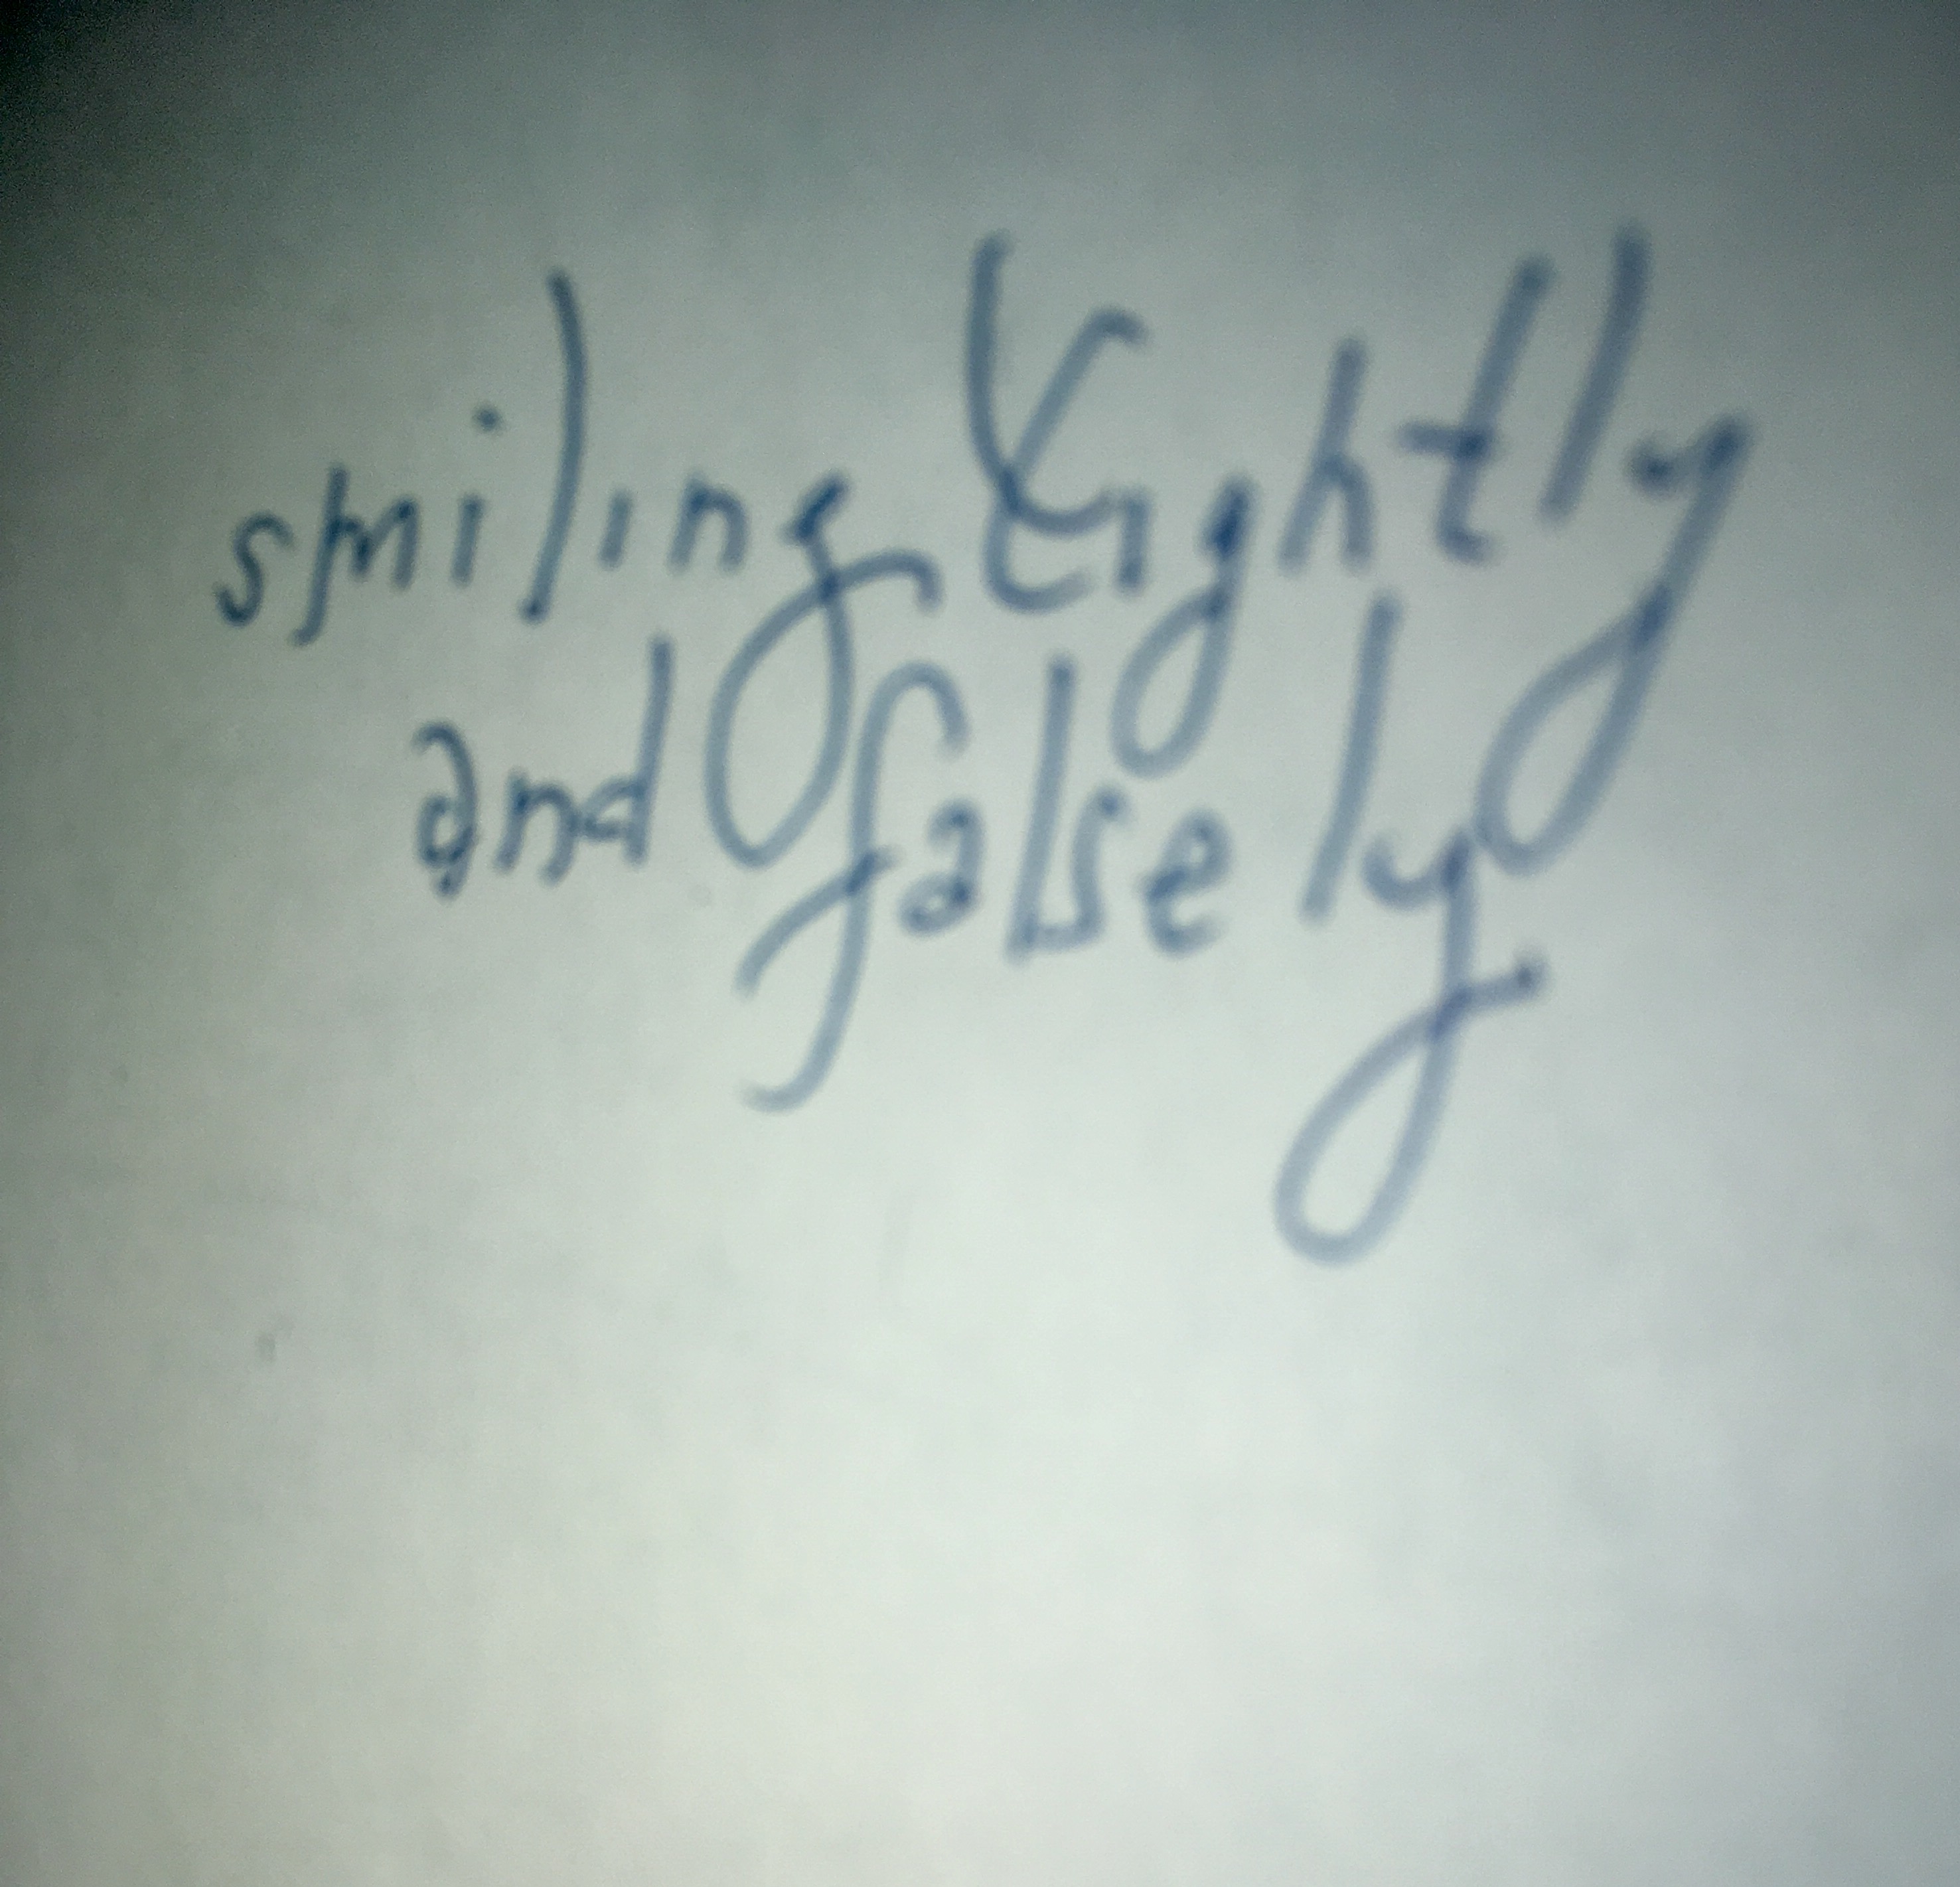 smiling tightly
and falsely.